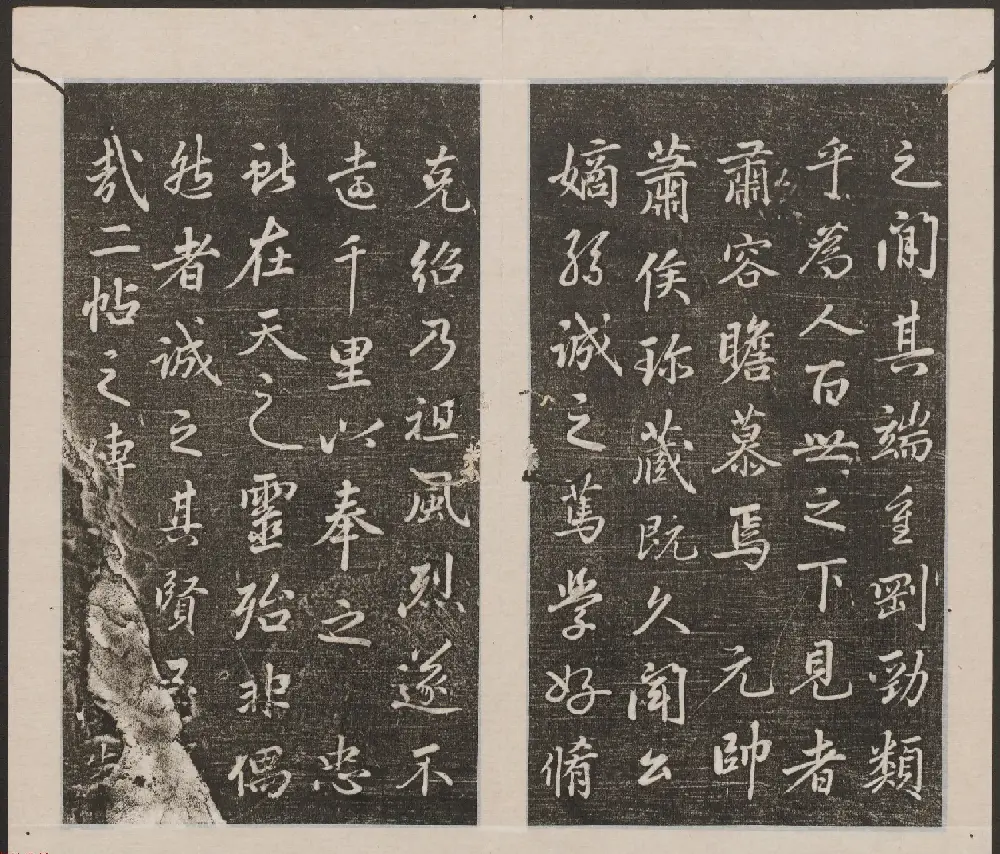 之間其端重剛勁類
乎為人百世之下見者
肅容瞻慕焉元帥
蕭侯珎藏既久聞公
嫡孫誠之篤學好脩
克紹乃祖風烈遂不
遠千里以奉之忠
獻在天之靈殆非偶
然者誠之其賢
哉二帖之傳